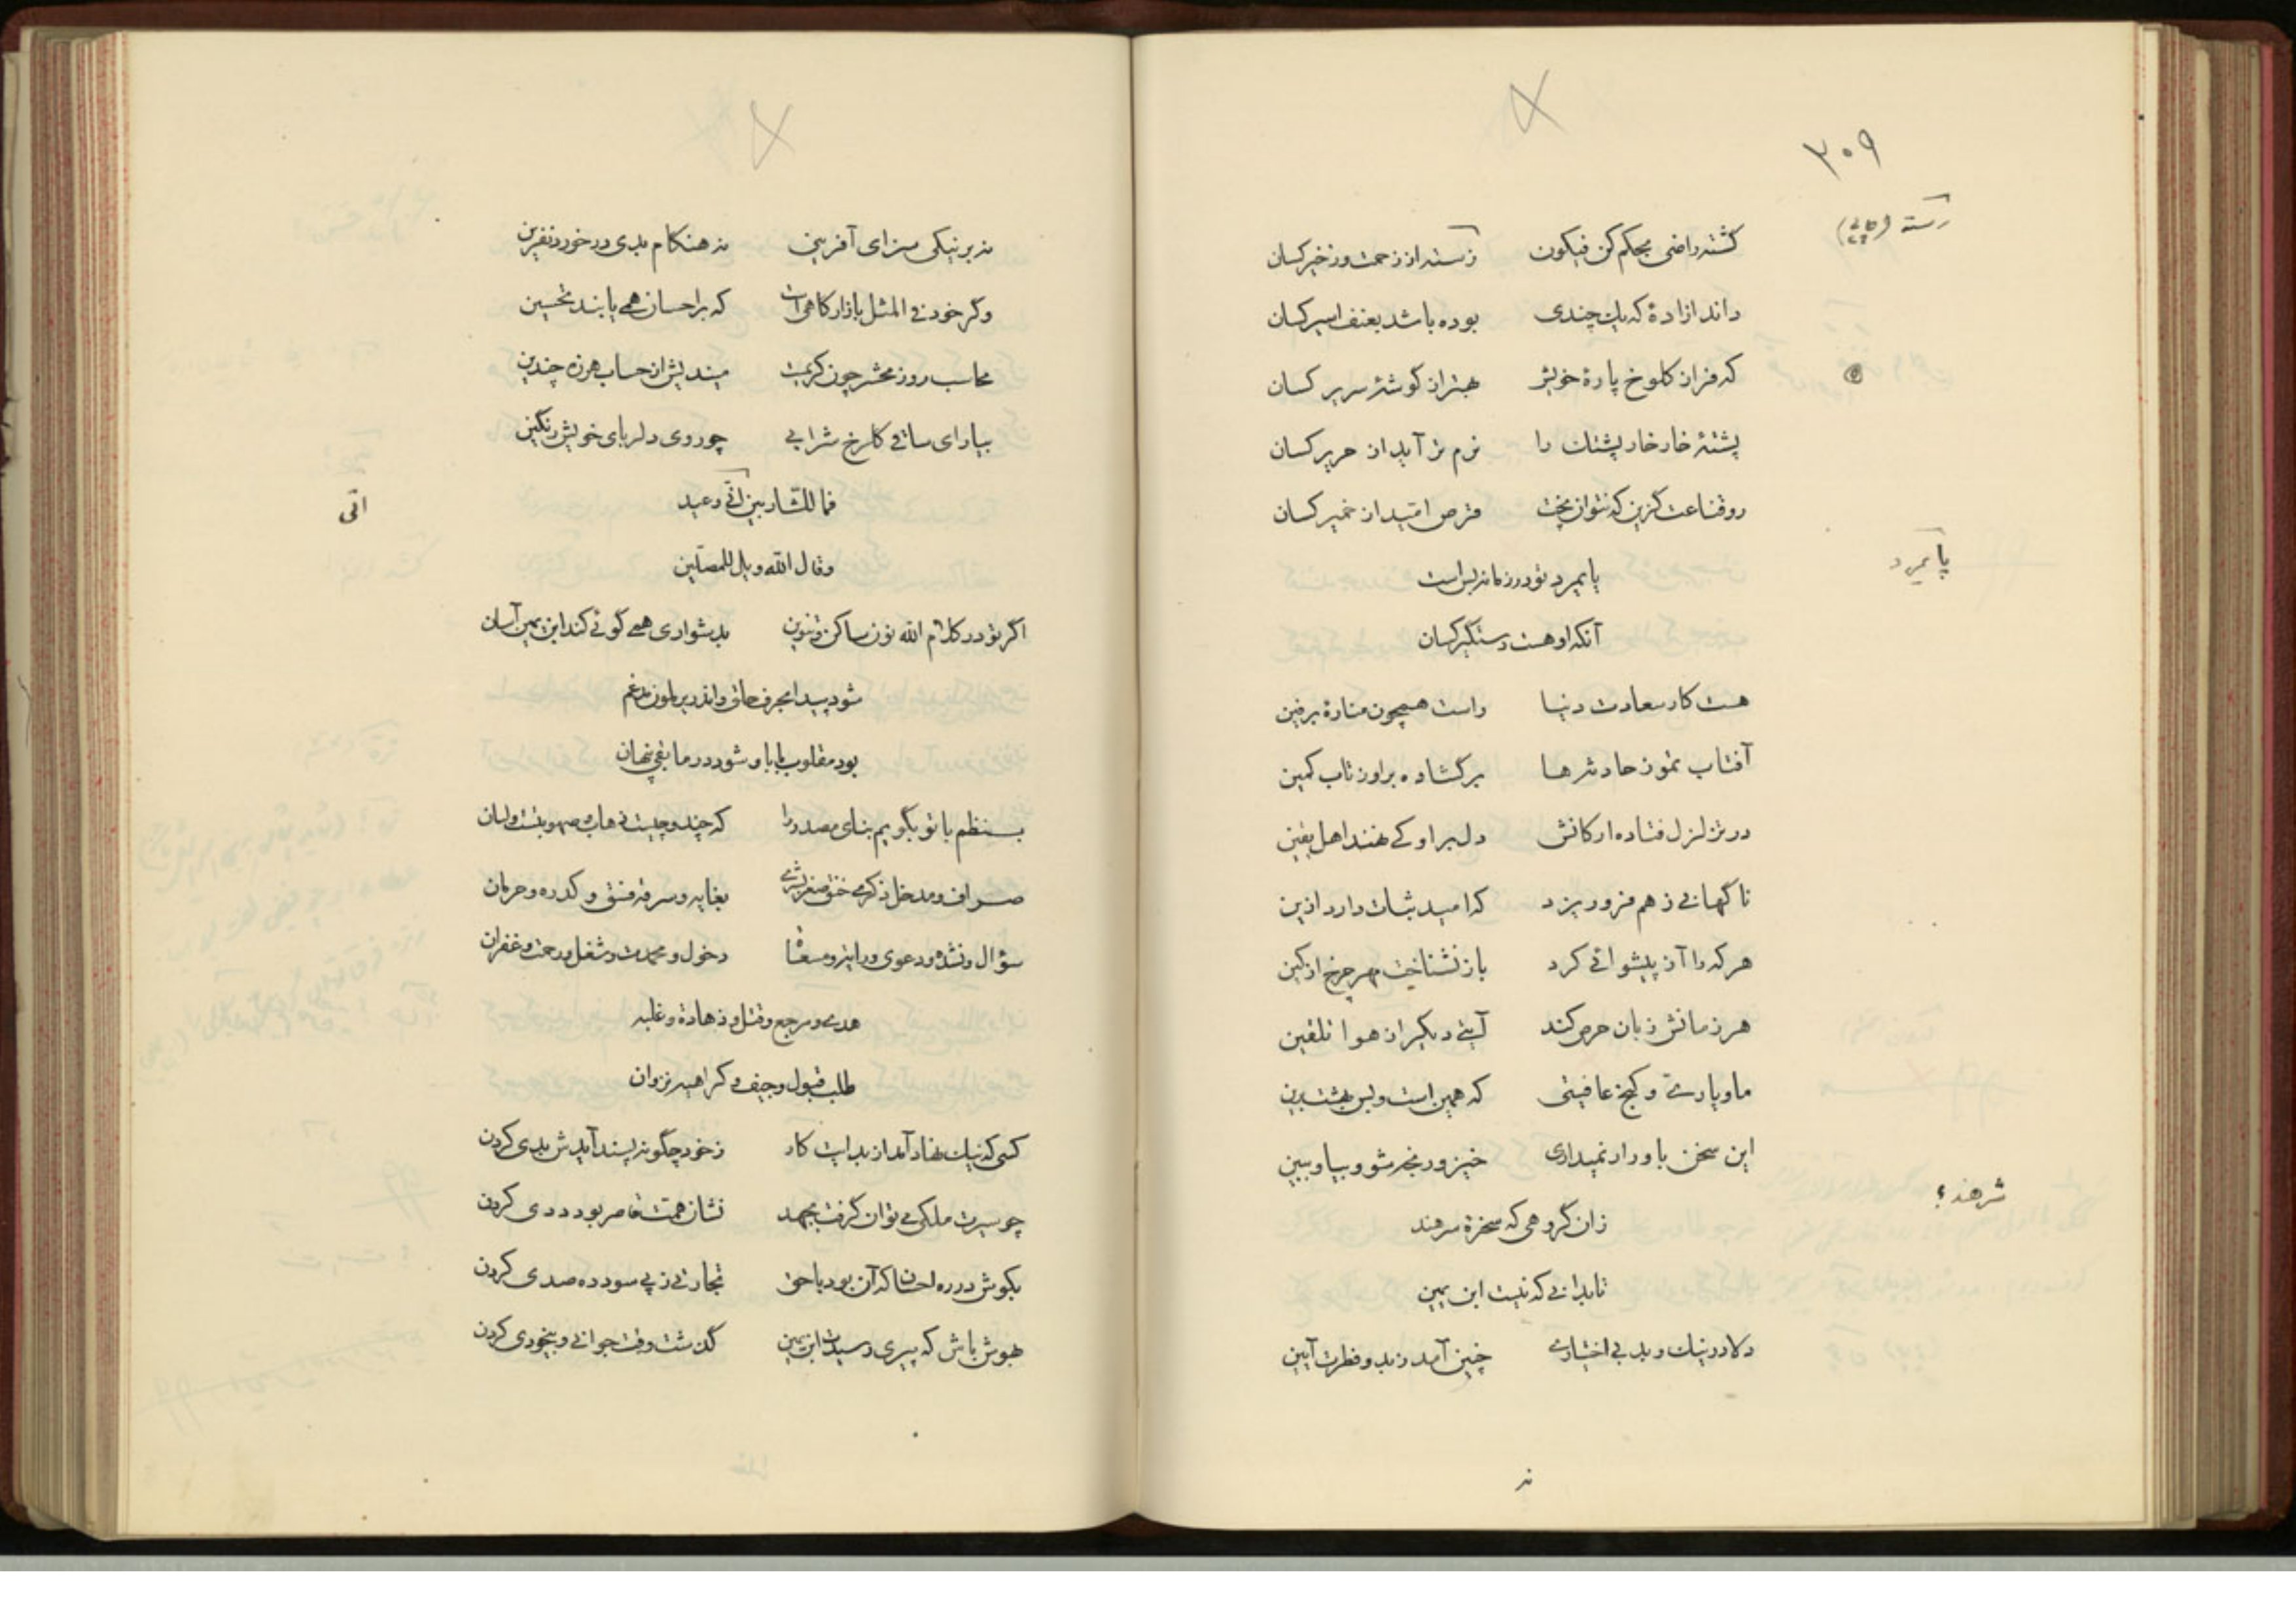 ۳۰۹
رسته
گشته راضی بحکم کن فیکون رسته از زحمت و زخیر کسان
داند آزادهٔ که یک چندی بوده باشد بعنف اسیر کسان
که فراز کلوخ پارهٔ خویش بهتر از گوشهٔ سریر کسان
پشتهٔ خار خارپشتک را نرم تر آید از حریر کسان
رو قناعت گزین که نتوان پخت قرص امید از خمیر کسان
پایمرد تو در زمانه بس است
پایمرد
آنکه او هست دستگیر کسان
هست کار سعادت دنیا راست همچون منارهٔ برفین
آفتاب تموز حادثه‌ها برگشاده بر او ز تاب کمین
در تزلزل فتاده ارکانش دل بر او کی نهند اهل یقین
ناگهانی ز هم فرو ریزد که امید ثبات دارد ازین
هر که را آز پیشوائی کرد باز نشناخت مهر چرخ از کین
هر زمانش زبان حرص کند آیتی دیگر از هوا تلقین
ما و یاری و کنج عافیتی که همین است و بس بهشت برین
این سخن باور ار نمیداری خیز و رنجه شو و بیا و ببین
شرهند؟
زان گروهی که سخرهٔ سرهند
تا بدانی که نیست ابن یمین
دلا در نیک و بد بی اختیاری چنین آمد ز بدو فطرت آیین
نه
نه بر نیکی سزای آفرینی نه هنگام بدی در خورد نفرین
وگر خود فی المثل بازار کاهی است که بر احسان همی یابند تحسین
محاسب روز محشر چون کریمست میندیش از حساب هرزه چندین
بیار ای ساقی گلرخ شرابی چو روی دلربای خویش رنگین
فما للشاربین اتی وعید
اتی
وقال الله ویل للمصلین
اگر تو در کلام الله نون ساکن و تنوین بدشواری همی گوئی کند ابن یمین آسان
شود پیدا بحرف حلق و اندر یرملون مدغم
بود مقلوب با با و شود در ما بقی پنهان
بنظم با تو بگویم بنای مصدر را
سؤال و نشده و دعوی دخول و محمدت و شغل و رحمت و غفران
هدی و مرجع و قتل و زهادة و غلبه
طلب قبول و کراهیه نزوان
کسی که نیک نهاد آمد از بدایت کار ز خود چگونه پسند آیدش بدی کردن
چو سیرت ملکی می توان گرفت بجهد نشان همت قاصر بود ددی کردن
بکوش در ره احسان که آن بود با حق تجارتی ز پی سود ده صدی کردن
بهوش باش که پیری رسید ابن یمین گذشت وقت جوانی و بیخودی کردن